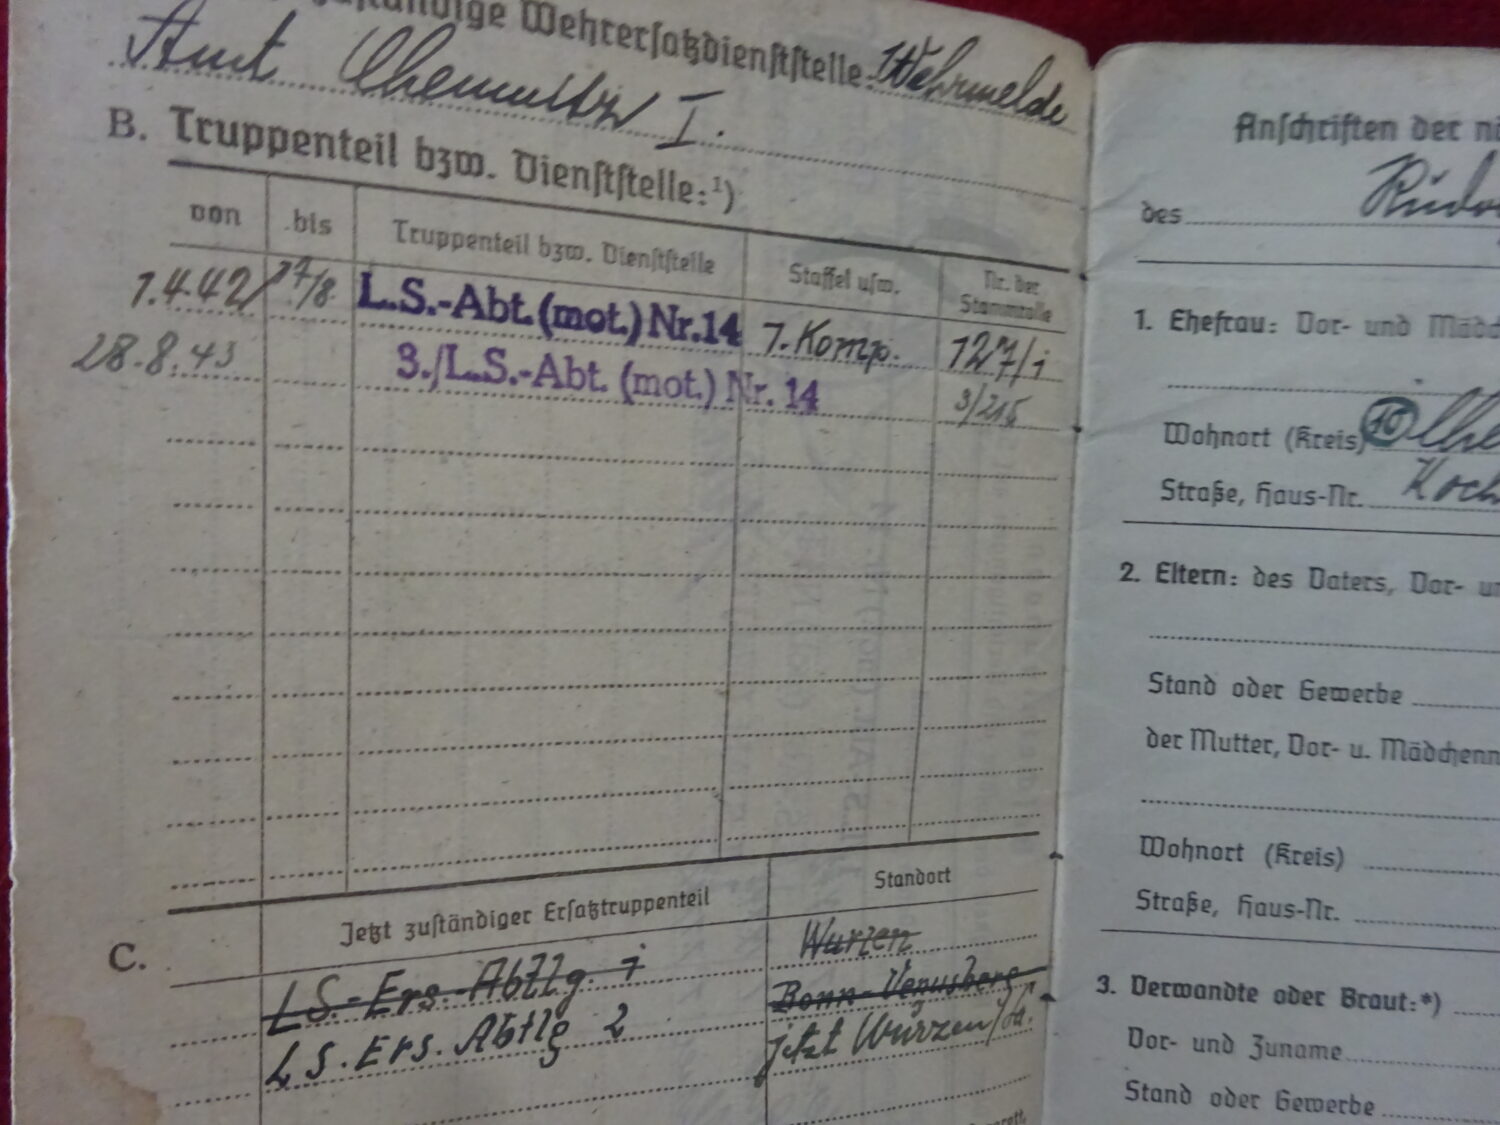 zuständige Wehrersatzdienststelle: Wehrmelde
Amt Chemnitz I.
B. Truppenteil bzw. Dienststelle:¹)
von bis Truppenteil bzw. Dienststelle Staffel usw. Nr. der Stammrolle
1.4.42 27/8. L.S.-Abt.(mot.) Nr.14 7. Komp. 127/1
28.8.43 3./L.S.-Abt. (mot.) Nr. 14 3/215
C. Jetzt zuständiger Ersatztruppenteil Standort
LS.-Ers.-Abtlg. 1 Wurzen
Bonn-Venusberg
LS. Ers. Abtlg 2 jetzt Wurzen/Sa.
Anschriften der
des
1. Ehefrau: Vor- und
Wohnort (Kreis) 10
Straße, Haus-Nr.
2. Eltern: des Vaters, Vor-
Stand oder Gewerbe
der Mutter, Vor- u.
Wohnort (Kreis)
Straße, Haus-Nr.
3. Verwandte oder Braut:*)
Vor- und Zuname
Stand oder Gewerbe